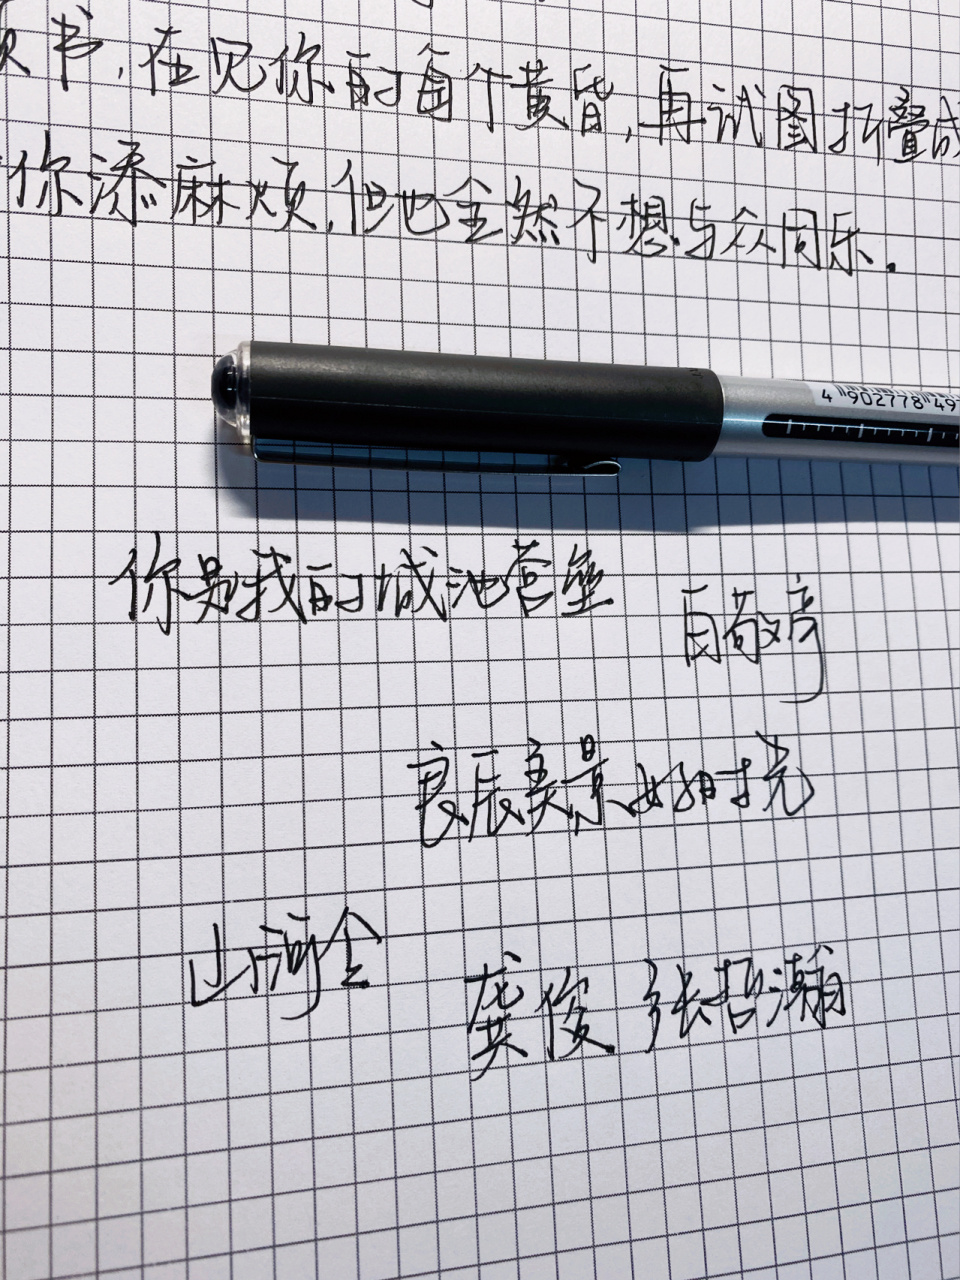 书,在见你的每个黄昏,再试图折叠成
你添麻烦,但也全然不想与众同乐.
4 902778 49
你是我的城池营垒
白敬亭
良辰美景好时光
山河令
龚俊 张哲瀚